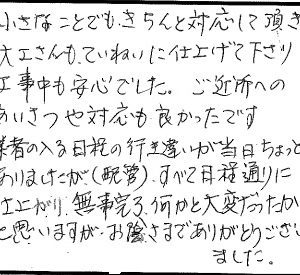 小さなことでもきちんと対応して頂き
大工さんも、ていねいに仕上げて下さり
工事中も安心でした。ご近所への
あいさつや対応も良かったです
業者の入る日程の行き違いが当日ちょっと
ありましたが(配管)、すべて日程通りに
仕上がり、無事完了、何かと大変だったか
と思いますが、お陰さまでありがとうござい
ました。